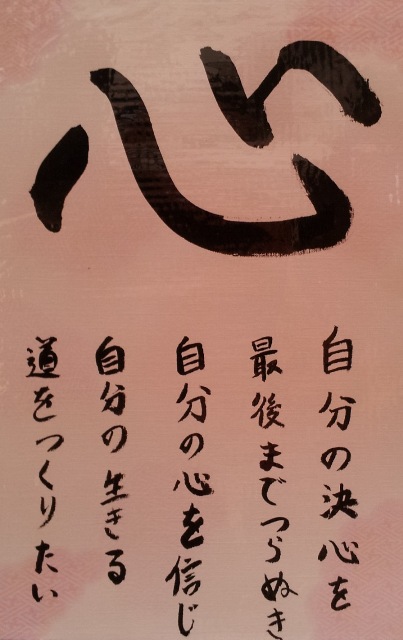 心
自分の決心を
最後までつらぬき
自分の心を信じ
自分の生きる
道をつくりたい